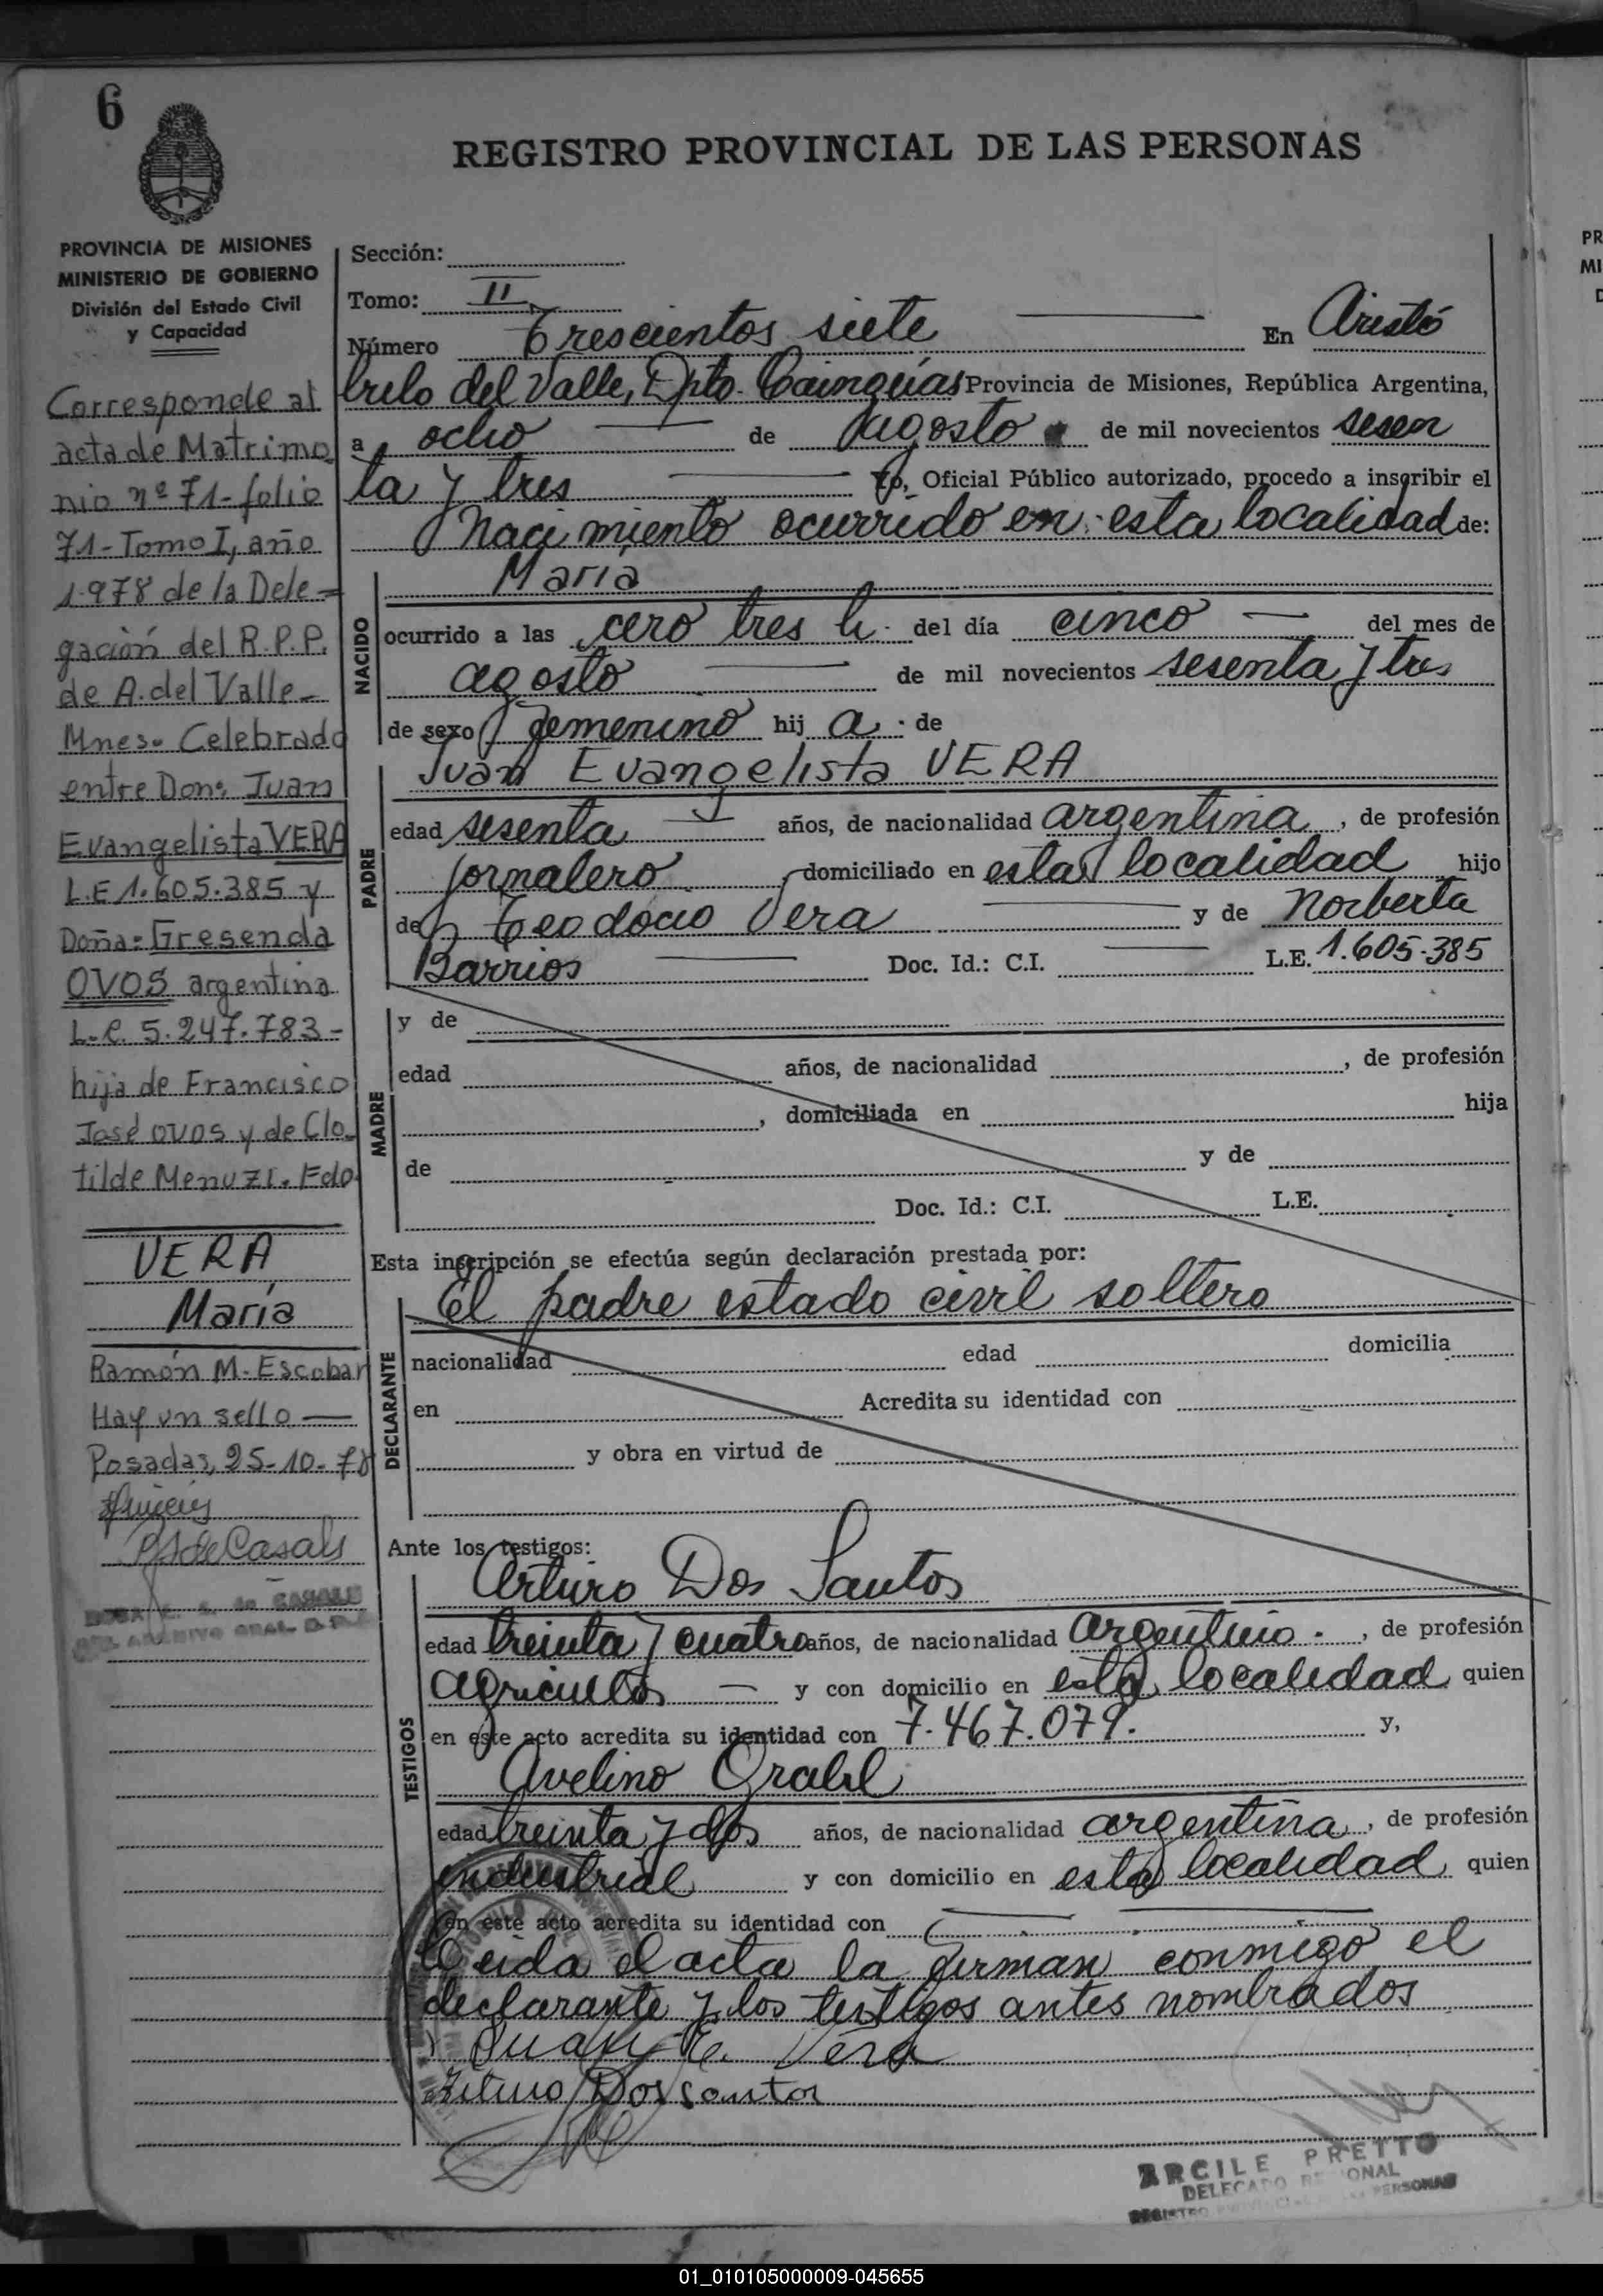 6
REGISTRO PROVINCIAL DE LAS PERSONAS
PROVINCIA DE MISIONES
MINISTERIO DE GOBIERNO
División del Estado Civil
y Capacidad
Corresponde al
acta de Matrimo
nio nº 71- folio
71- Tomo I, año
1.978 de la Dele=
gación del R.P.P.
de A. del Valle-
Mnes. Celebrado
entre Don: Juan
Evangelista VERA
L.E 1.605.385 y
Doña= Gresenda
OVOS argentina
L.C. 5.247.783-
hija de Francisco
José OVOS y de Clo-
tilde Menuzi. Fdo.
VERA
María
Ramón M. Escobar
Hay un sello —
Posadas, 25-10-78
de Casals
Sección:
Tomo: II
Número Trescientos siete — En Aristó
bulo del Valle, Dpto. Cainguías Provincia de Misiones, República Argentina,
a ocho — de agosto de mil novecientos sesen
ta y tres — Yo, Oficial Público autorizado, procedo a inscribir el
Nacimiento ocurrido en esta localidad de:
NACIDO
María
ocurrido a las cero tres h. del día cinco — del mes de
agosto — de mil novecientos sesenta y tres
de sexo femenino hij a de
PADRE
Juan Evangelista VERA
edad sesenta — años, de nacionalidad argentina, de profesión
jornalero, domiciliado en esta localidad hijo
de Teodocio Vera — y de Norberta
Barrios — Doc. Id.: C.I. — L.E. 1.605.385
MADRE
y de
edad años, de nacionalidad , de profesión
, domiciliada en hija
de y de
Doc. Id.: C.I. L.E.
Esta inscripción se efectúa según declaración prestada por:
El padre estado civil soltero
DECLARANTE
nacionalidad edad domicilia
en Acredita su identidad con
y obra en virtud de
Ante los testigos:
TESTIGOS
Arturo Dos Santos
edad treinta y cuatro años, de nacionalidad argentino, de profesión
agricultor — y con domicilio en esta localidad quien
en este acto acredita su identidad con 7.467.079. y,
Avelino Grahl
edad treinta y dos años, de nacionalidad argentina, de profesión
industrial y con domicilio en esta localidad quien
en este acto acredita su identidad con —
Leida el acta la firman conmigo el
declarante y los testigos antes nombrados
Juan E. Vera
Arturo Dos Santos
ARCILE PRETTO
DELEGADO REGIONAL
01_010105000009-045655